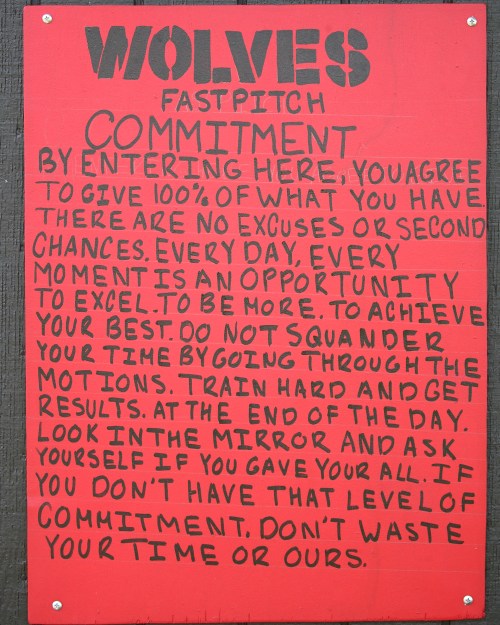 WOLVES
FASTPITCH
COMMITMENT
BY ENTERING HERE, YOU AGREE
TO GIVE 100% OF WHAT YOU HAVE.
THERE ARE NO EXCUSES OR SECOND
CHANCES. EVERY DAY, EVERY
MOMENT IS AN OPPORTUNITY
TO EXCEL. TO BE MORE. TO ACHIEVE
YOUR BEST. DO NOT SQUANDER
YOUR TIME BY GOING THROUGH THE
MOTIONS. TRAIN HARD AND GET
RESULTS. AT THE END OF THE DAY.
LOOK IN THE MIRROR AND ASK
YOURSELF IF YOU GAVE YOUR ALL. IF
YOU DON'T HAVE THAT LEVEL OF
COMMITMENT. DON'T WASTE
YOUR TIME OR OURS.